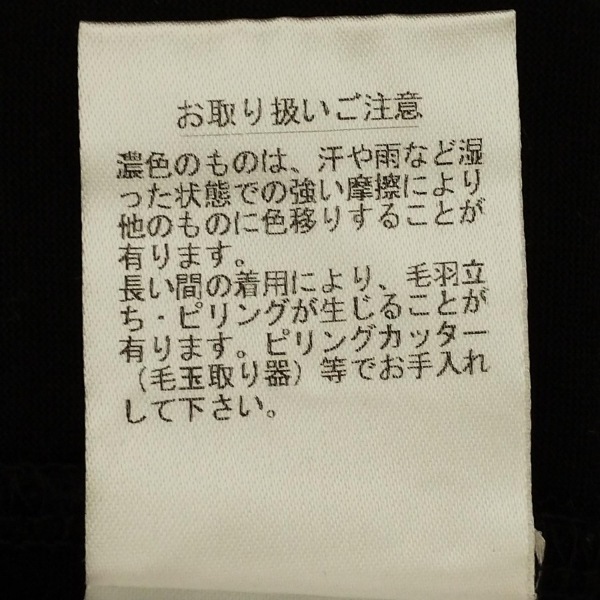 お取り扱いご注意
濃色のものは、汗や雨など湿
った状態での強い摩擦により
他のものに色移りすることが
有ります。
長い間の着用により、毛羽立
ち・ピリングが生じることが
有ります。ピリングカッター
（毛玉取り器）等でお手入れ
して下さい。